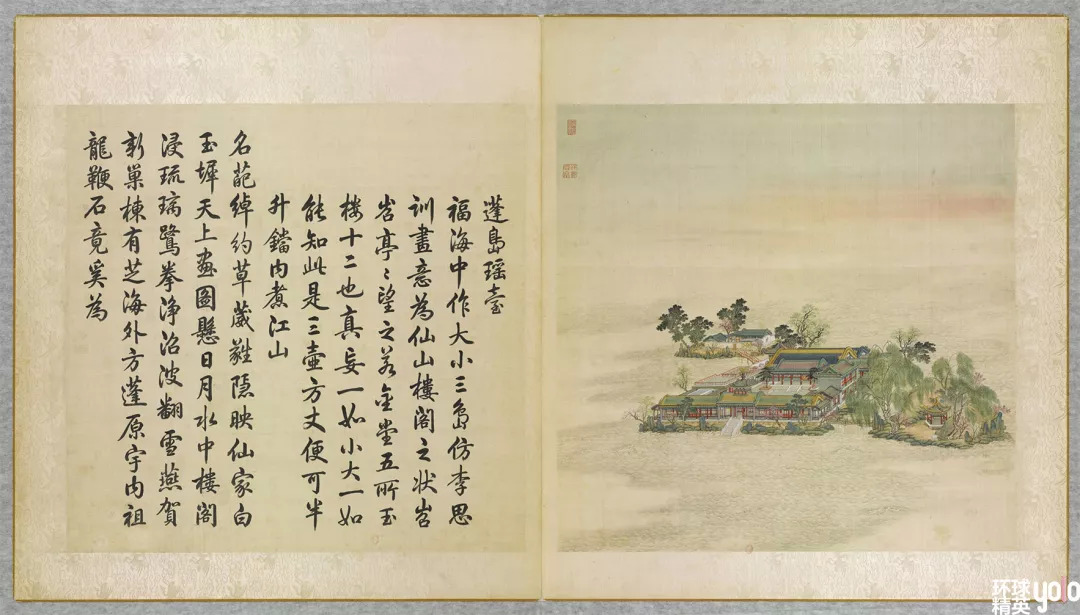 蓬島瑶臺
福海中作大小三島仿李思
訓畫意為仙山樓閣之狀岧
岧亭〻望之若金堂五所玉
樓十二也真妄一如小大一如
能知此是三壺方丈便可半
升鐺内煮江山
名葩綽約草葳蕤隱映仙家白
玉墀天上畫圖懸日月水中樓閣
浸琉璃鷺拳淨沼波翻雪燕賀
新巢棟有芝海外方蓬原宇内祖
龍鞭石竟奚為
环球
精英 yolo